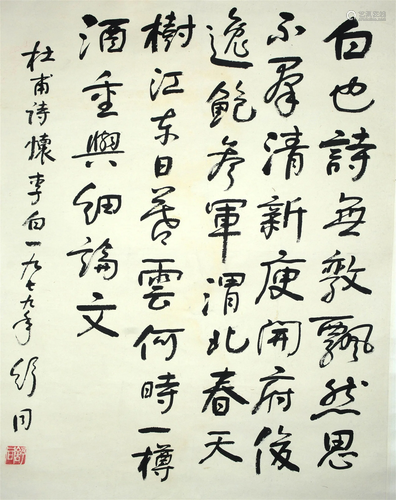 白也詩無敵飄然思
不羣清新庾開府俊
逸鮑参軍渭北春天
樹江东日暮雲何時一樽
酒重與細論文
杜甫詩懷李白一九七九年舒同